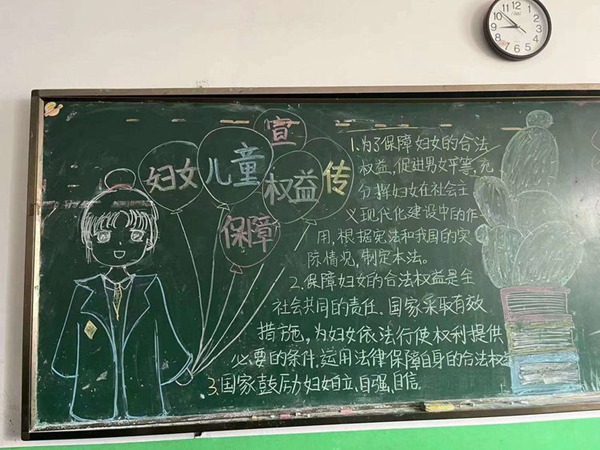 妇女
儿童
宣
权益
传
保障
1.为了保障妇女的合法
权益,促进男女平等,充
分挥妇女在社会主
义现代化建设中的作
用,根据宪法和我国的实
际情况,制定本法。
2.保障妇女的合法权益是全
社会共同的责任.国家采取有效
措施,为妇女依法行使权利提供
必要的条件.运用法律保障自身的合法权
3.国家鼓励妇女自立、自强、自信
12
1
2
3
4
5
6
7
8
9
10
11